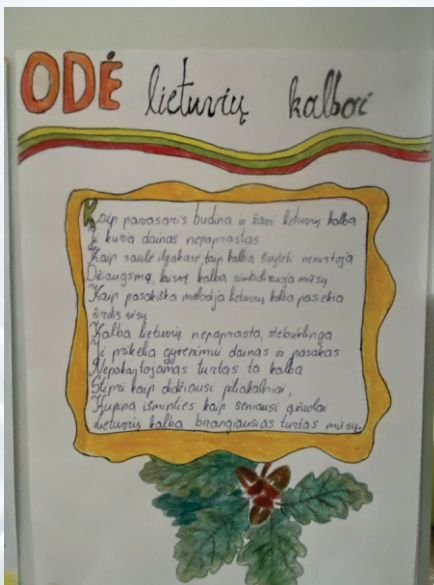 ODĖ lietuvių kalbai
Kaip pavasaris budina ir žavi lietuvių kalba
Ji kuria dainas nepaprastas
Kaip saulė ilgakasė, taip kalba švytėti nenustoja
Džiaugsmą, laisvę kalba simbolizuoja mūsų
Kaip pasakiška melodija lietuvių kalba pasiekia
širdis visų
Kalba lietuvių nepaprasta, stebuklinga
Ji prikelia gyvenimui dainas ir pasakas
Nepakartojamas turtas ta kalba
Stipri kaip didžiausi piliakalniai,
Kupina išminties kaip seniausi ąžuolai
Lietuvių kalba brangiausias turtas mūsų.